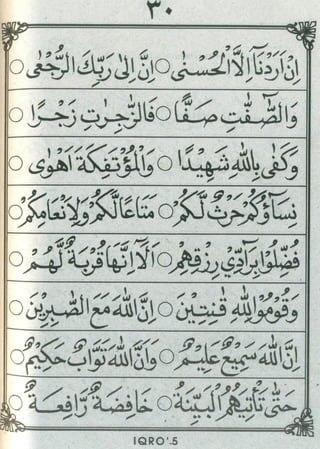 ٣٠
اِنْ اَرَدْنَآ اِلَّا الْحُسْنٰى ○ اِنَّ اِلٰى رَبِّكَ الرُّجْعٰى ○
وَالصّٰٓفّٰتِ صَفًّا ○ فَالزّٰجِرٰتِ زَجْرًا ○
وَكَفٰى بِاللّٰهِ شَهِيْدًا ○ وَالْمُؤْتَفِكَةَ اَهْوٰى ○
نِسَآؤُكُمْ حَرْثٌ لَّكُمْ ○ مَتَاعًا لَّكُمْ وَلِاَنْعَامِكُمْ ○
فُضِّلُوْا بِرَآدِّيْ رِزْقِهِمْ ○ اَلَآ اِنَّهَا قُرْبَةٌ لَّهُمْ ○
وَقُوْمُوْا لِلّٰهِ قٰنِتِيْنَ ○ اِنَّ اللّٰهَ مَعَ الصّٰبِرِيْنَ ○
اِنَّ اللّٰهَ سَمِيْعٌ عَلِيْمٌ ○ وَاَنَّ اللّٰهَ تَوَّابٌ حَكِيْمٌ ○
حَتّٰى تَأْتِيَهُمُ الْبَيِّنَةُ ○ خَافِضَةٌ رَّافِعَةٌ ○
IQRO'.5